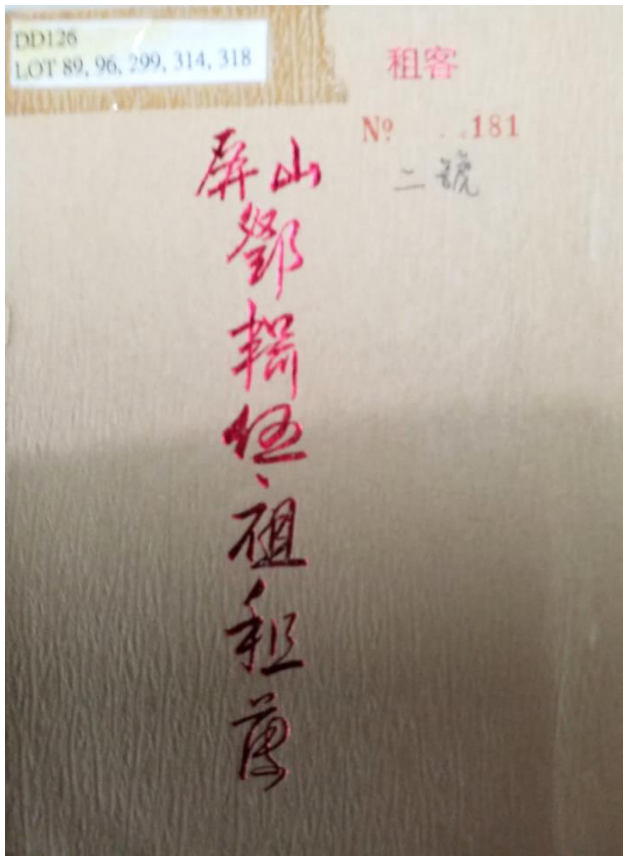 DD126
LOT 89, 96, 299, 314, 318
租客
Nº 181
二號
屏山
鄧輯伍祖租簿